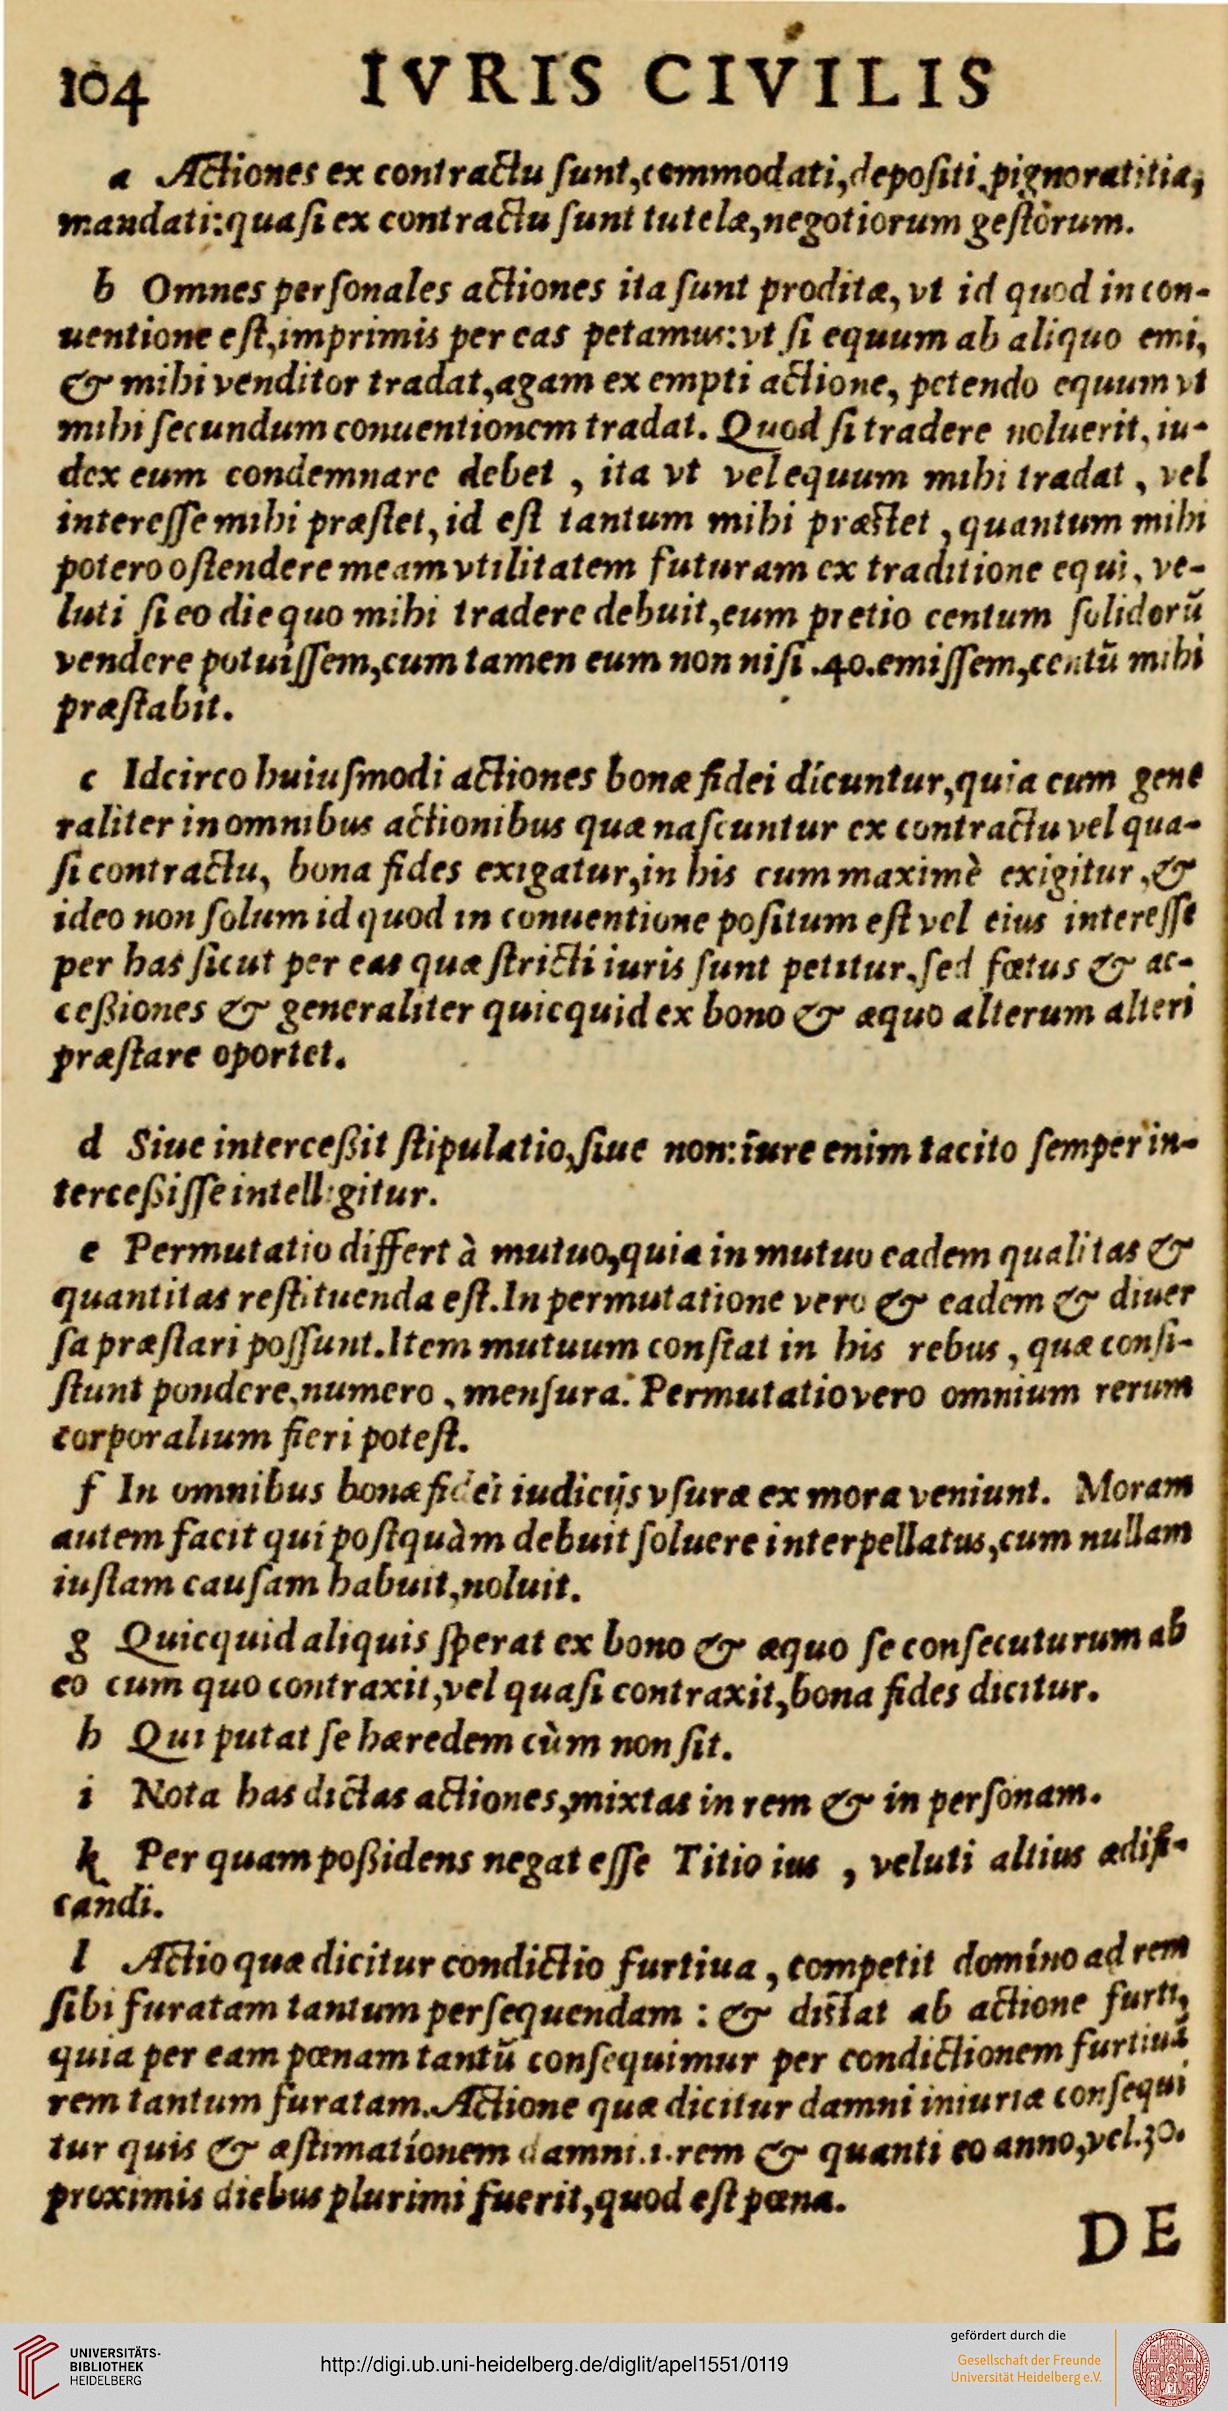 104 IVRIS CIVILIS
a Actiones ex contractu ſunt, commodati, depoſiti, pignoratitia,
mandati: quaſi ex contractu ſunt tutelæ, negotiorum geſtorum.
b Omnes perſonales actiones ita ſunt proditæ, vt id quod in con-
uentione eſt, imprimis per eas petamus: vt ſi equum ab aliquo emi,
& mihi venditor tradat, agam ex empti actione, petendo equum vt
mihi ſecundum conuentionem tradat. Quod ſi tradere noluerit, iu-
dex eum condemnare debet , ita vt vel equum mihi tradat , vel
intereſſe mihi præſtet, id eſt tantum mihi præſtet , quantum mihi
potero oſtendere meam vtilitatem futuram ex traditione equi, ve-
luti ſi eo die quo mihi tradere debuit, eum pretio centum ſolidorũ
vendere potuiſſem, cum tamen eum non niſi .40. emiſſem, centũ mihi
præſtabit.
c Idcirco huiuſmodi actiones bonæ fidei dicuntur, quia cum gene
raliter in omnibus actionibus quæ naſcuntur ex contractu vel qua-
ſi contractu, bona fides exigatur, in his cum maximè exigitur , &
ideo non ſolum id quod in conuentione poſitum eſt vel eius intereſſe
per has ſicut per eas quæ ſtricti iuris ſunt petitur, ſed fœtus & ac-
ceßiones & generaliter quicquid ex bono & æquo alterum alteri
præſtare oportet.
d Siue interceßit ſtipulatio, ſiue non: iure enim tacito ſemper in-
terceßiſſe intelligitur.
e Permutatio differt à mutuo, quia in mutuo eadem qualitas &
quantitas reſtituenda eſt. In permutatione vero & eadem & diuer
ſa præſtari poſſunt. Item mutuum conſtat in his rebus , quæ conſi-
ſtunt pondere, numero , menſura. Permutatio vero omnium rerum
corporalium fieri poteſt.
f In omnibus bonæ fidei iudicijs vſuræ ex mora veniunt. Moram
autem facit qui poſtquàm debuit ſoluere interpellatus, cum nullam
iuſtam cauſam habuit, noluit.
g Quicquid aliquis ſperat ex bono & æquo ſe conſecuturum ab
eo cum quo contraxit, vel quaſi contraxit, bona fides dicitur.
h Qui putat ſe hæredem cùm non ſit.
i Nota has dictas actiones, mixtas in rem & in perſonam.
k Per quam poßidens negat eſſe Titio ius , veluti altius ædifi-
candi.
l Actio quæ dicitur condictio furtiua , competit domino ad rem
ſibi furatam tantum perſequendam : & diſtat ab actione furti,
quia per eam pœnam tantũ conſequimur per condictionem furtiuã
rem tantum furatam. Actione quæ dicitur damni iniuriæ conſequi
tur quis & æſtimationem damni .i. rem & quanti eo anno, vel .30.
proximis diebus plurimi fuerit, quod eſt pœna.
DE
UNIVERSITÄTS-
BIBLIOTHEK
HEIDELBERG
http://digi.ub.uni-heidelberg.de/diglit/apel1551/0119
gefördert durch die
Gesellschaft der Freunde
Universität Heidelberg e.V.